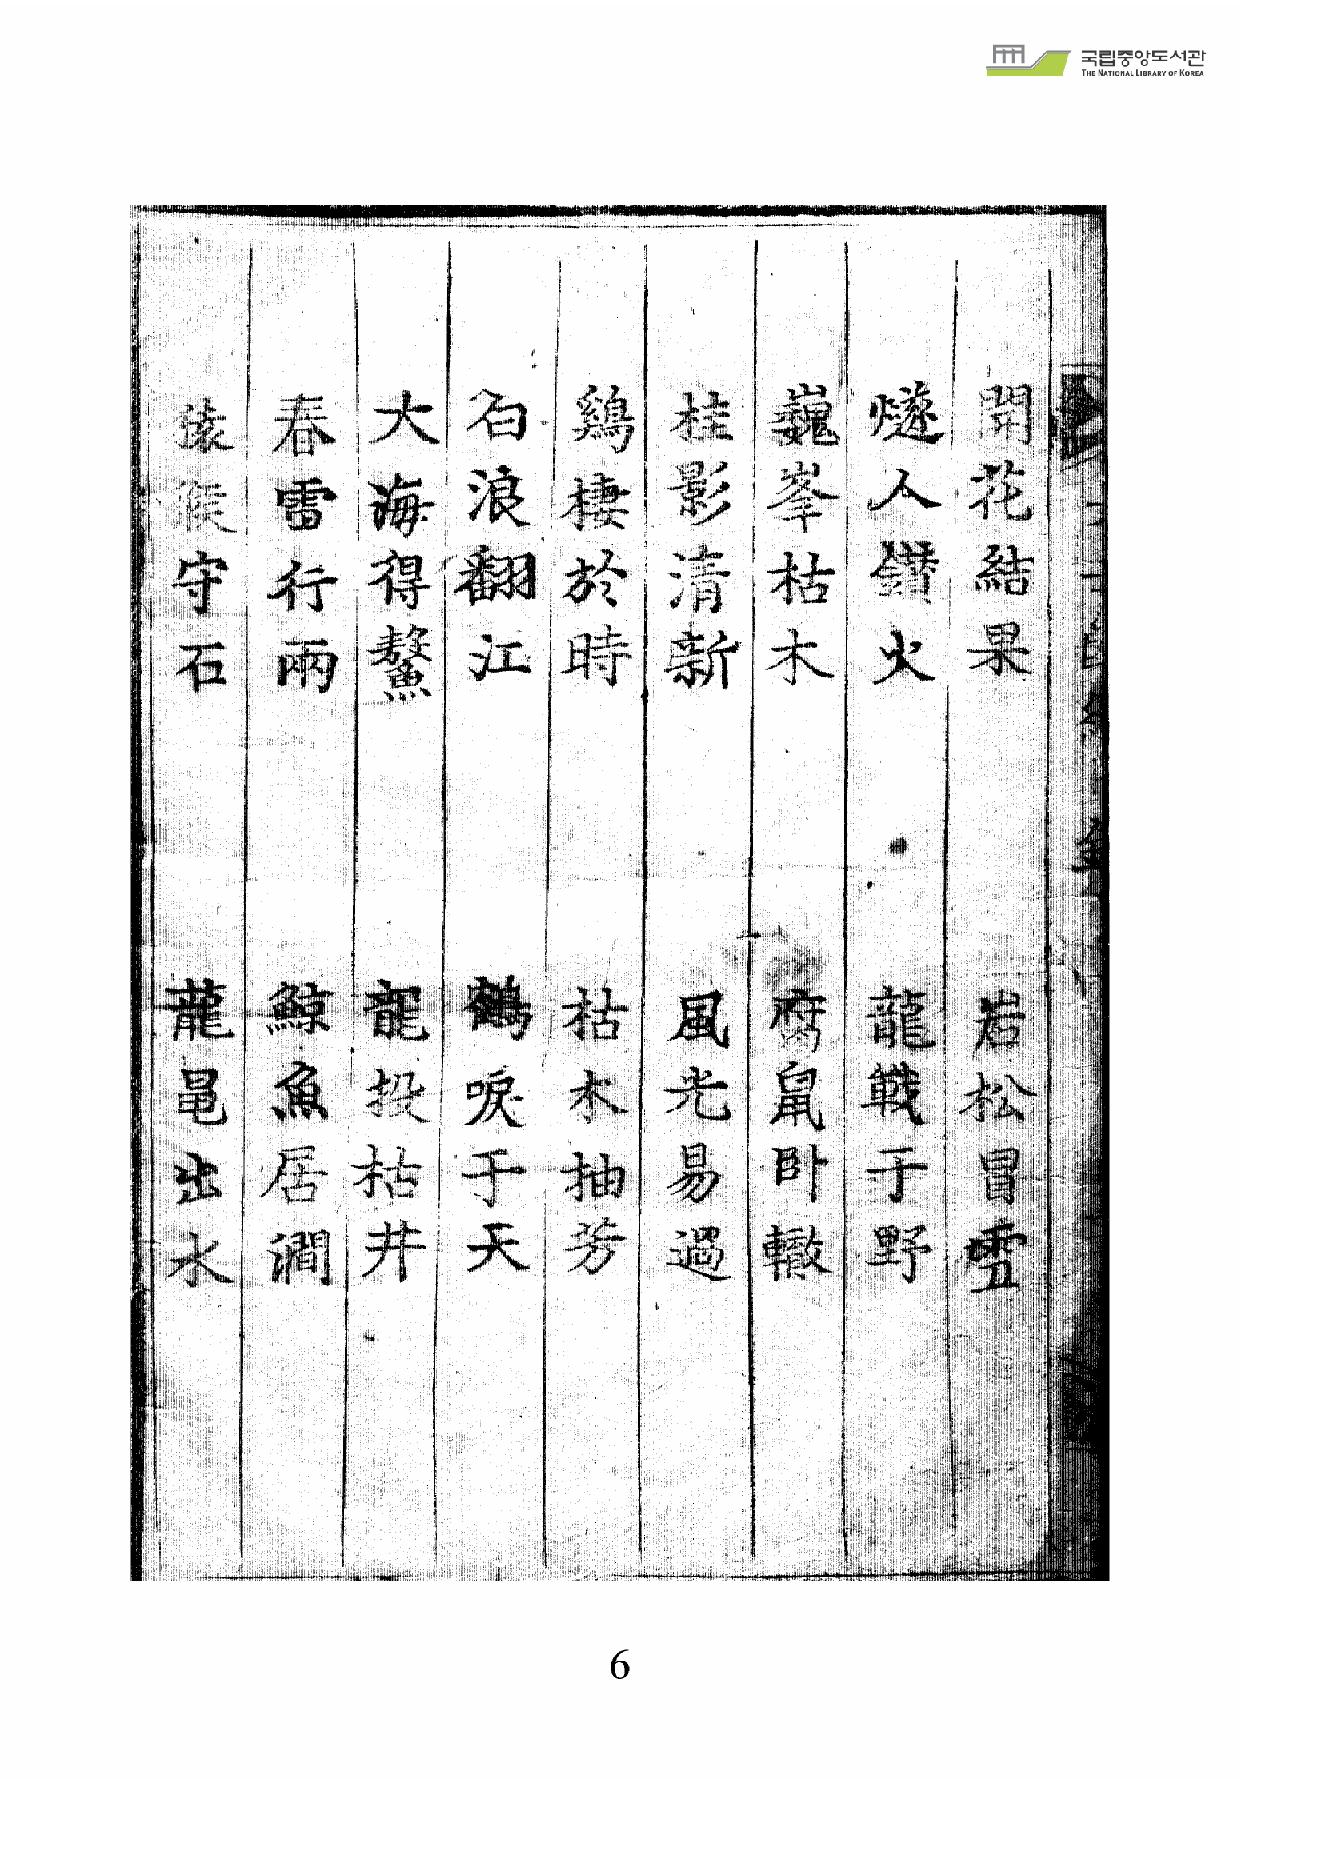 국립중앙도서관
THE NATIONAL LIBRARY OF KOREA
開花結果 岩松冒雪
燧人鑽火 龍戰于野
巍峯枯木 腐鼠卧轍
桂影清新 風光易過
鷄棲於時 枯木抽芳
白浪翻江 鶴唳于天
大海得鰲 竜投枯井
春雷行雨 鯨魚居澗
猿猴守石 龍黽出水
6